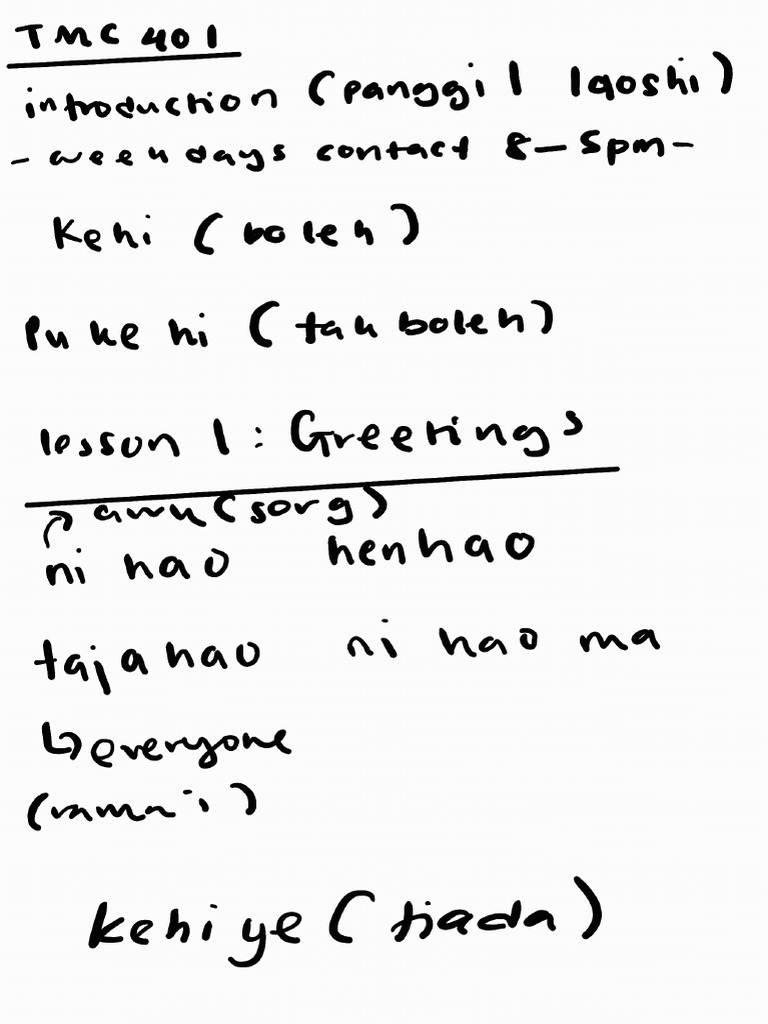 TMC 401
introduction (panggil laoshi)
- weekdays contact 8-5pm-
Kehi (boleh)
Pu ke hi (tak boleh)
lesson 1: Greetings
awk (sorg)
ni hao henhao
tajahao ni hao ma
↳ everyone
(ramai)
kehiye (tiada)